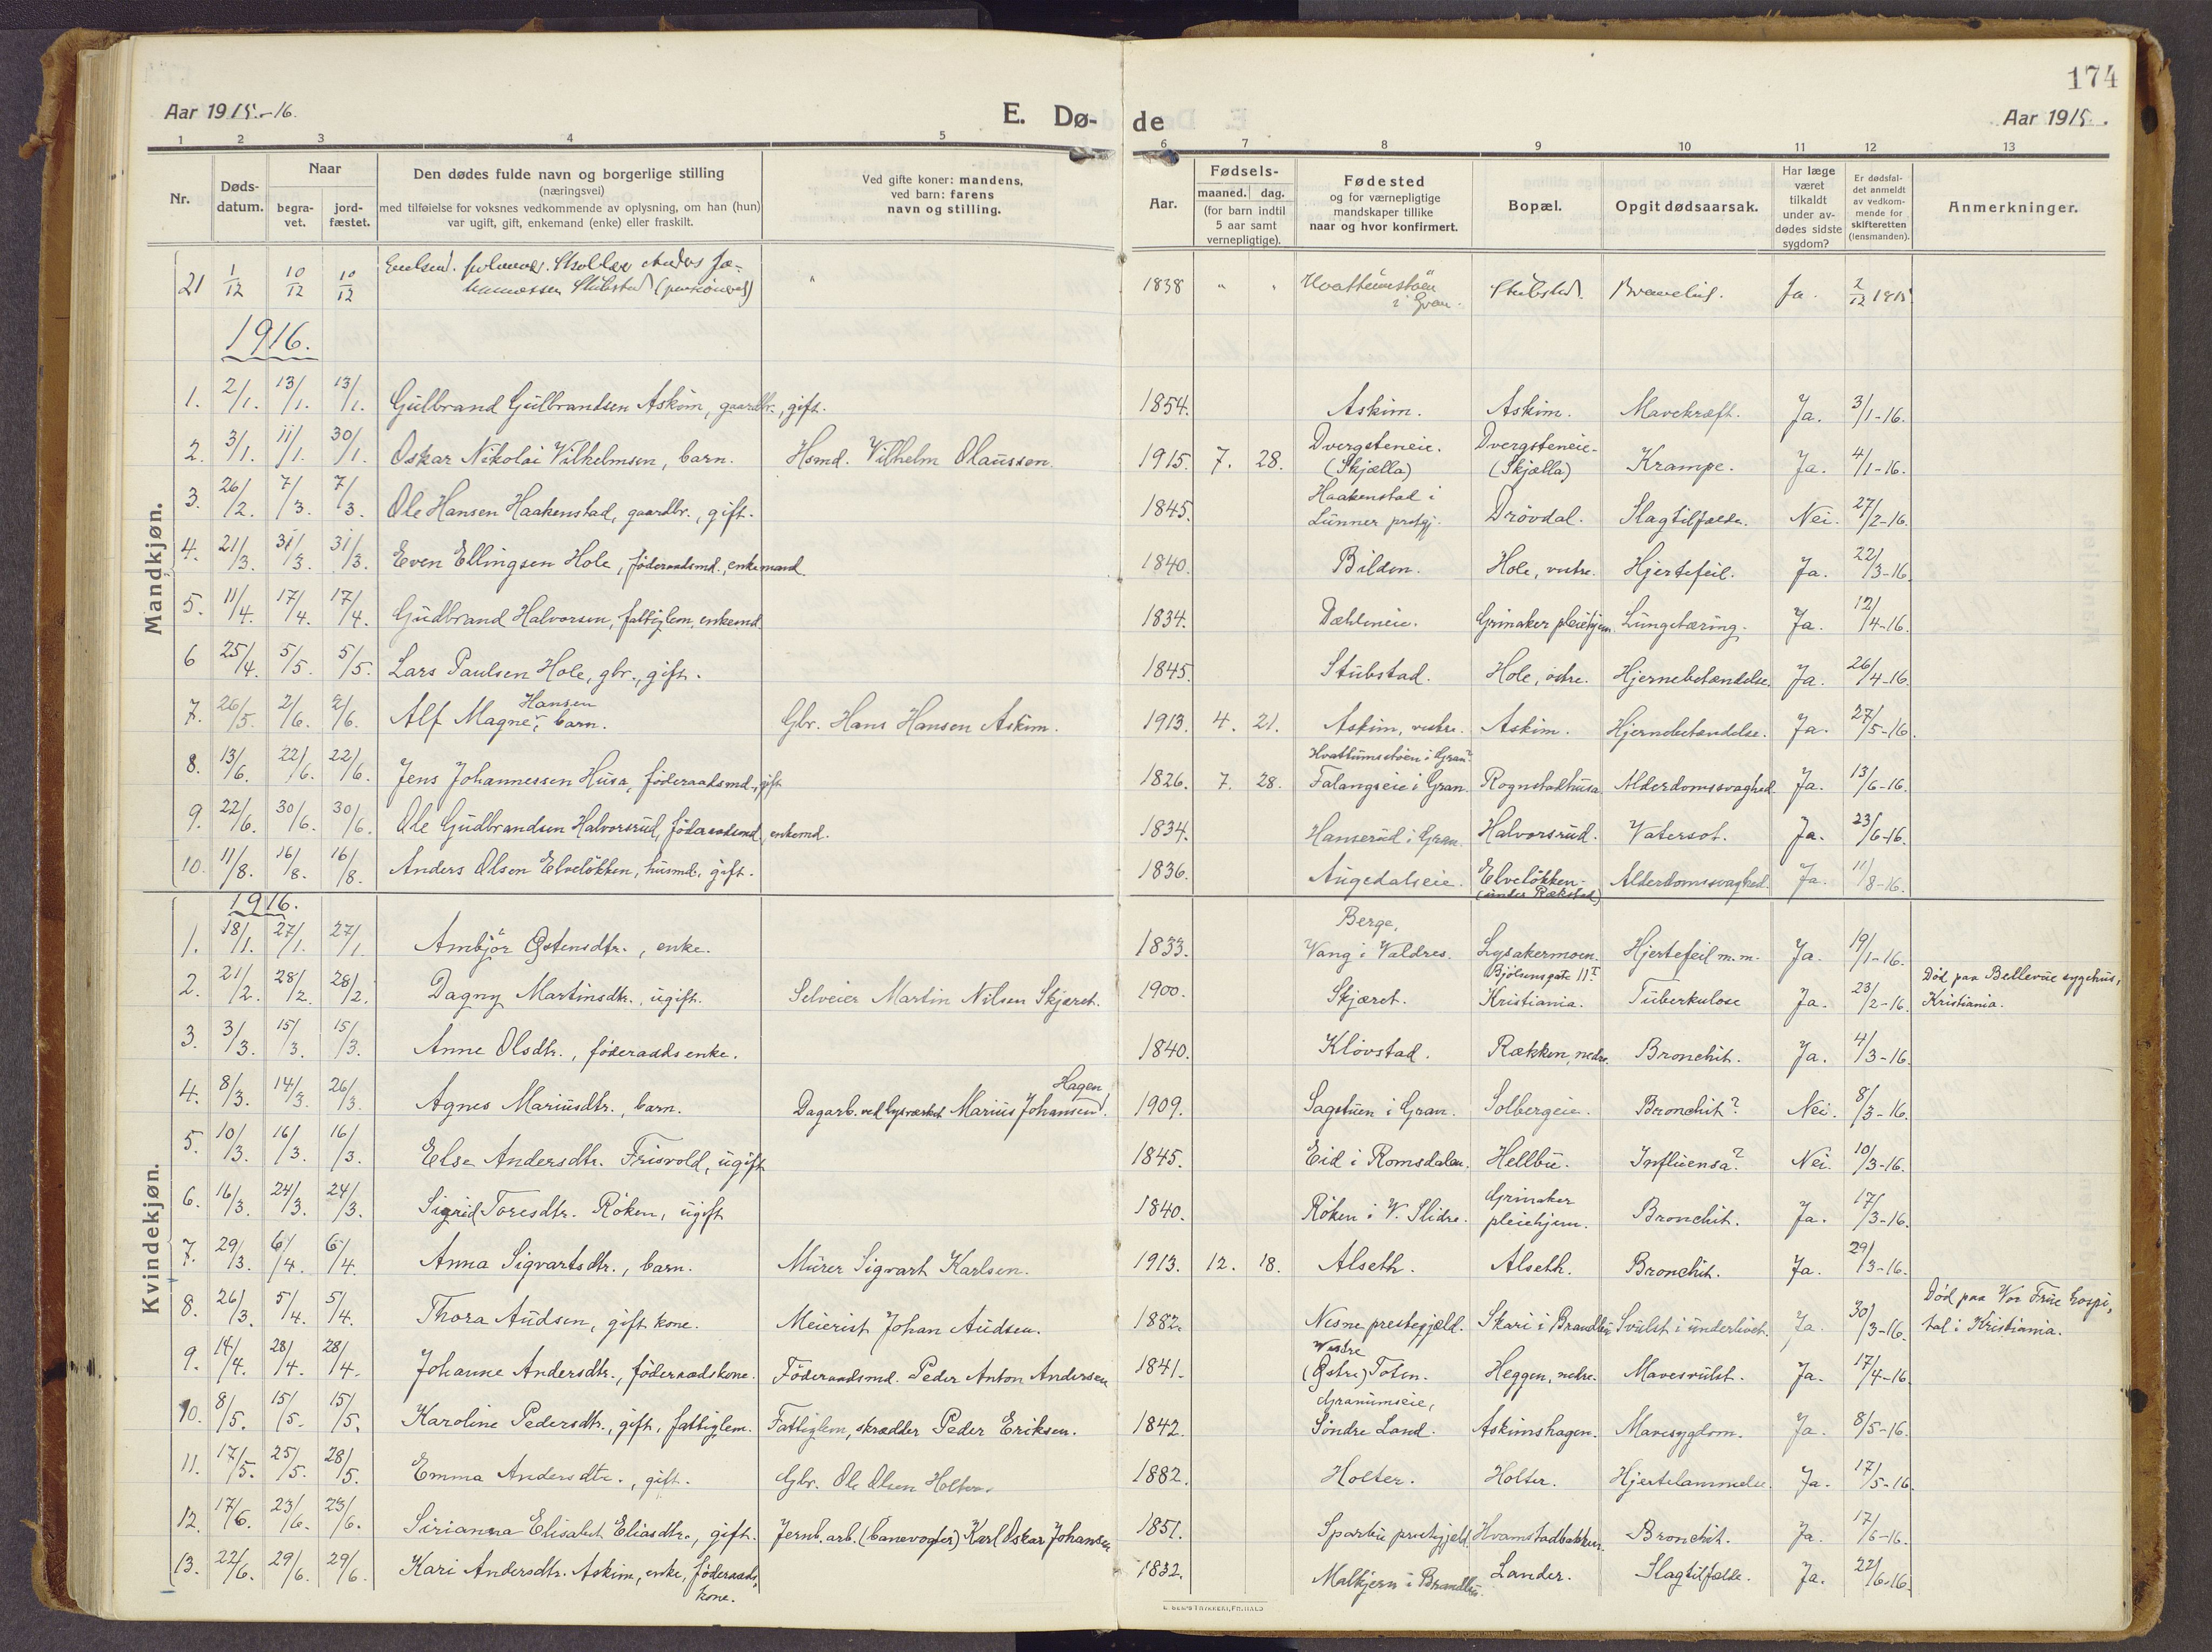 174
Aar 1915-16. E. Dø- de Aar 1915.
1 2 3 4 5 6 7 8 9 10 11 12 13
Nr. Døds-datum. Naar begra-vet. jord-fæstet. Den dødes fulde navn og borgerlige stilling (næringsvei) med tilføielse for voksnes vedkommende av oplysning, om han (hun) var ugift, gift, enkemand (enke) eller fraskilt. Ved gifte koner: mandens, ved barn: farens navn og stilling. Aar. Fødsels- maaned. dag. (for barn indtil 5 aar samt vernepligtige). Fødested og for værnepligtige mandskaper tillike naar og hvor konfirmert. Bopæl. Opgit dødsaarsak. Har læge været tilkaldt under av-dødes sidste sygdom? Er dødsfal-det anmeldt av vedkom-mende for skifteretten (lensmanden). Anmerkninger.
Mandkjøn.
21 1/12 10/12 10/12 Anders Jo-hannessen Stubstad " 1838 " " Hvattumstøen i Gran. Stubstad. Ja. 2/12 1915
1916.
1. 2/1. 13/1. 13/1. Gulbrand Gulbrandsen Askim, gaardbr., gift. 1854. Askim. Askim. Mavekræft. Ja. 3/1-16.
2. 3/1. 11/1. 30/1. Oskar Nikolai Vilhelmsen, barn. Hsmd. Vilhelm Olaussen. 1915. 7. 28. Dvergsteneie. (Skjælla) Dvergsteneie. (Skjælla) Krampe. Ja. 4/1-16.
3. 26/2. 7/3. 7/3. Ole Hansen Haakenstad, gaardbr., gift. 1845. Haakenstad i Lunner prstgj. Drövdal. Slagtilfælde. Nei. 27/2-16.
4. 21/3. 31/3. 31/3. Even Ellingsen Hole, föderaadsmd., enkemand. 1840. Bilden. Hole, vestre. Hjertefeil. Ja. 22/3-16.
5. 11/4. 17/4. 17/4. Gudbrand Halvorsen, fattiglem, enkemd. 1834. Dæhleneie. Grinaker pleiehjem. Lungetæring. Ja. 12/4-16.
6 25/4. 5/5. 5/5. Lars Paulsen Hole, gbr., gift. 1845. Stubstad. Hole, östre. Hjernebetændelse. Ja. 26/4-16.
7. 26/5. 2/6. 2/6. Alf Magne Hansen, barn. Gbr. Hans Hansen Askim. 1913. 4. 21. Askim, vestre. Askim. Hjernebetændelse. Ja. 27/5-16.
8. 13/6. 22/6. 22/6. Jens Johannessen Husa, föderaadsmd., gift 1826. 7. 28. Hvattumstöen i Gran? Falangseie i Gran. Rognstadhusa Alderdomssvaghed. Ja. 13/6-16.
9. 22/6. 30/6. 30/6. Ole Gudbrandsen Halvorsrud, föderaadsmd, enkemd. 1834. Hanserud i Gran. Halvorsrud. Vatersot. Ja. 23/6-16.
10. 11/8. 16/8. 16/8. Anders Olsen Elvelökken, husmd., gift. 1836. Augedalseie. Elvelökken. (under Rækstad) Alderdomssvaghed. Ja. 11/8-16.
Kvindekjøn.
1916.
1. 18/1. 27/1. 27/1. Ambjör Östensdtr., enke. 1833. Berge, Vang i Valdres. Lysakermoen. Hjertefeil m.m. Ja. 19/1-16.
2. 21/2. 28/2. 28/2. Dagny Martinsdtr., ugift. Selveier Martin Nilsen Skjæret. 1900. Skjæret. Bjölsensgate 11 I Kristiania. Tuberkulose Ja. 23/2-16. Död paa Bellevue sygehus, Kristiania.
3. 3/3. 15/3. 15/3. Anne Olsdtr., föderaadsenke. 1840. Klövstad. Rækken, nedre. Bronchit. Ja. 4/3-16.
4. 8/3. 14/3. 26/3. Agnes Mariusdtr., barn. Dagarb. ved lysverket Marius Johansen Hagen. 1909. Sagstuen i Gran. Solbergeie. Bronchit? Nei. 8/3-16.
5. 10/3. 16/3. 16/3. Else Andersdtr. Frisvold, ugift 1845. Eid i Romsdalen. Hellbu. Influensa? Nei. 10/3-16.
6. 16/3. 24/3. 24/3. Sigrid Toresdtr. Röken, ugift 1840. Röken i V. Slidre. Grinaker pleiehjem. Bronchit. Ja. 17/3-16.
7. 29/3. 6/4. 6/4. Anna Sigvartsdtr., barn. Murer Sigvart Karlsen. 1913. 12. 18. Alseth. Alseth. Bronchit. Ja. 29/3-16.
8. 26/3. 5/4. 5/4. Thora Audsen, gift kone. Meierist Johan Audsen. 1882. Nesne prestegjeld. Skari i Brandbu Svulst i underlivet. Ja. 30/3-16. Död paa Vor Frue hospi-tal i Kristiania.
9. 14/4. 28/4. 28/4. Johanne Andersdtr., föderaadskone. Föderaadsmd. Peder Anton Andersen 1841. Vestre (Östre) Toten. Heggen, nedre. Mavesvulst. Ja. 17/4-16.
10. 8/5. 15/5. 15/5. Karoline Pedersdtr., gift, fattiglem. Fattiglem, skrædder Peder Eriksen. 1842. Granumseie, Söndre Land. Askimshagen. Mavesygdom. Ja. 8/5-16.
11. 17/5. 25/5. 28/5. Emma Andersdtr., gift. Gbr. Ole Olsen Holter. 1882. Holter. Holter. Hjertelammelse. Ja. 17/5-16.
12. 17/6. 23/6. 23/6. Sirianna Elisabet Eliasdtr., gift. Jernb. arb. (banevogter) Karl Oskar Johansen 1851. Sparbu prestegjeld. Hvamstadbakken. Bronchit. Ja. 17/6-16.
13. 22/6. 29/6. 29/6. Kari Andersdtr. Askim, enke, föderaads-kone. 1832. Malkjern i Brandbu. Lander. Slagtilfælde. Ja. 22/6-16.